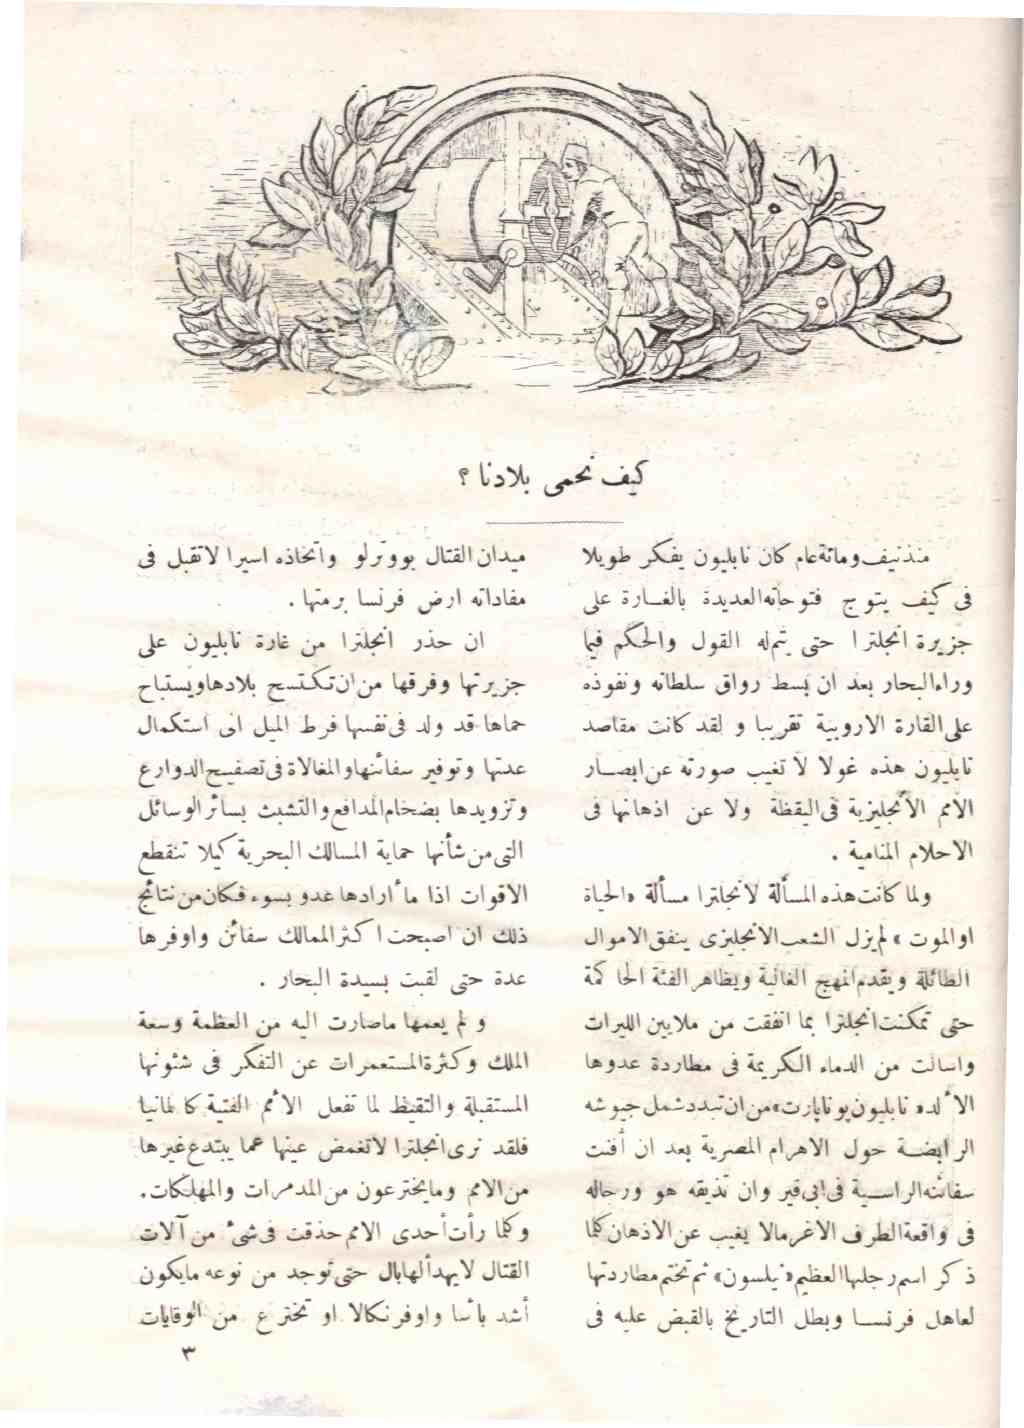 كيف نحمى بلادنا ؟
منذ نيف ومائة عام كان نابليون يفكر طويلا
فى كيف يتوج فتوحاته العديدة بالغارة على
جزيرة انجلترا حتى يتم له القول والحكم فيما
وراء البحار بعد ان بسط رواق سلطانه ونفوذه
على القارة الاروبية تقريبا و لقد كانت مقاصد
نابليون هذه غولا لا تغيب صورته عن ابصار
الامم الأنجليزية فى اليقظة ولا عن اذهانها فى
الاحلام المنامية .
ولما كانت هذه المسألة لانجلترا مسألة «الحياة
او الموت » لم يزل الشعب الانجليزى ينفق الاموال
الطائلة ويقدم المهج الغالية ويظاهر الفئة الحاكمة
حتى تمكنت انجلترا بما انفقت من ملايين الليرات
واسالت من الدماء الكريمة فى مطاردة عدوها
الألد « نابليون بونابارت » من ان تبدد شمل جيوشه
الرابضة حول الاهرام المصرية بعد ان أفنت
سفائنه الراسية فى ابى قير وان تذيقه هو ورجاله
فى واقعة الطرف الاغر مالا يغيب عن الاذهان كلما
ذكر اسم رجلها العظيم « نيلسون » ثم تختم مطاردتها
لعاهل فرنسا وبطل التاريخ بالقبض عليه فى
ميدان القتال بووترلو واتخاذه اسيرا لا تقبل فى
مفاداته ارض فرنسا برمتها .
ان حذر انجلترا من غارة نابليون على
جزيرتها وفرقها من ان تكتسح بلادها ويستباح
حماها قد ولد فى نفسها فرط الميل الى استكمال
عدتها وتوفير سفائنها والمغالاة فى تصفيح الدوارع
وتزويدها بضخام المدافع والتشبث بسائر الوسائل
التى من شأنها حماية المسالك البحرية كيلا تنقطع
الاقوات اذا ما أرادها عدو بسوء فكان من نتائج
ذلك ان اصبحت اكثر الممالك سفائن واوفرها
عدة حتى لقبت بسيدة البحار .
و لم يعمها ماصارت اليه من العظمة وسعة
الملك وكثرة المستعمرات عن التفكر فى شئونها
المستقبلة والتقيظ لما تفعل الأمم الفتية كالمانيا
فلقد نرى انجلترا لا تغمض عينها عما يبتدع غيرها
من الامم وما يخترعون من المدمرات والمهلكات.
وكلما رأت أحدى الامم حذقت فى شئ من آلات
القتال لا يهدأ لها بال حتى توجد من نوعه مايكون
أشد بأسا واوفر نكالا او تخترع من الوقايات
٣